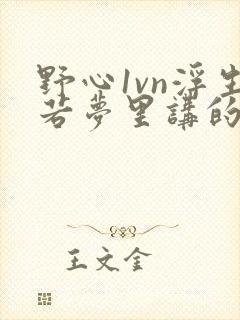 野心1vn浮生
若梦里講的
王文金